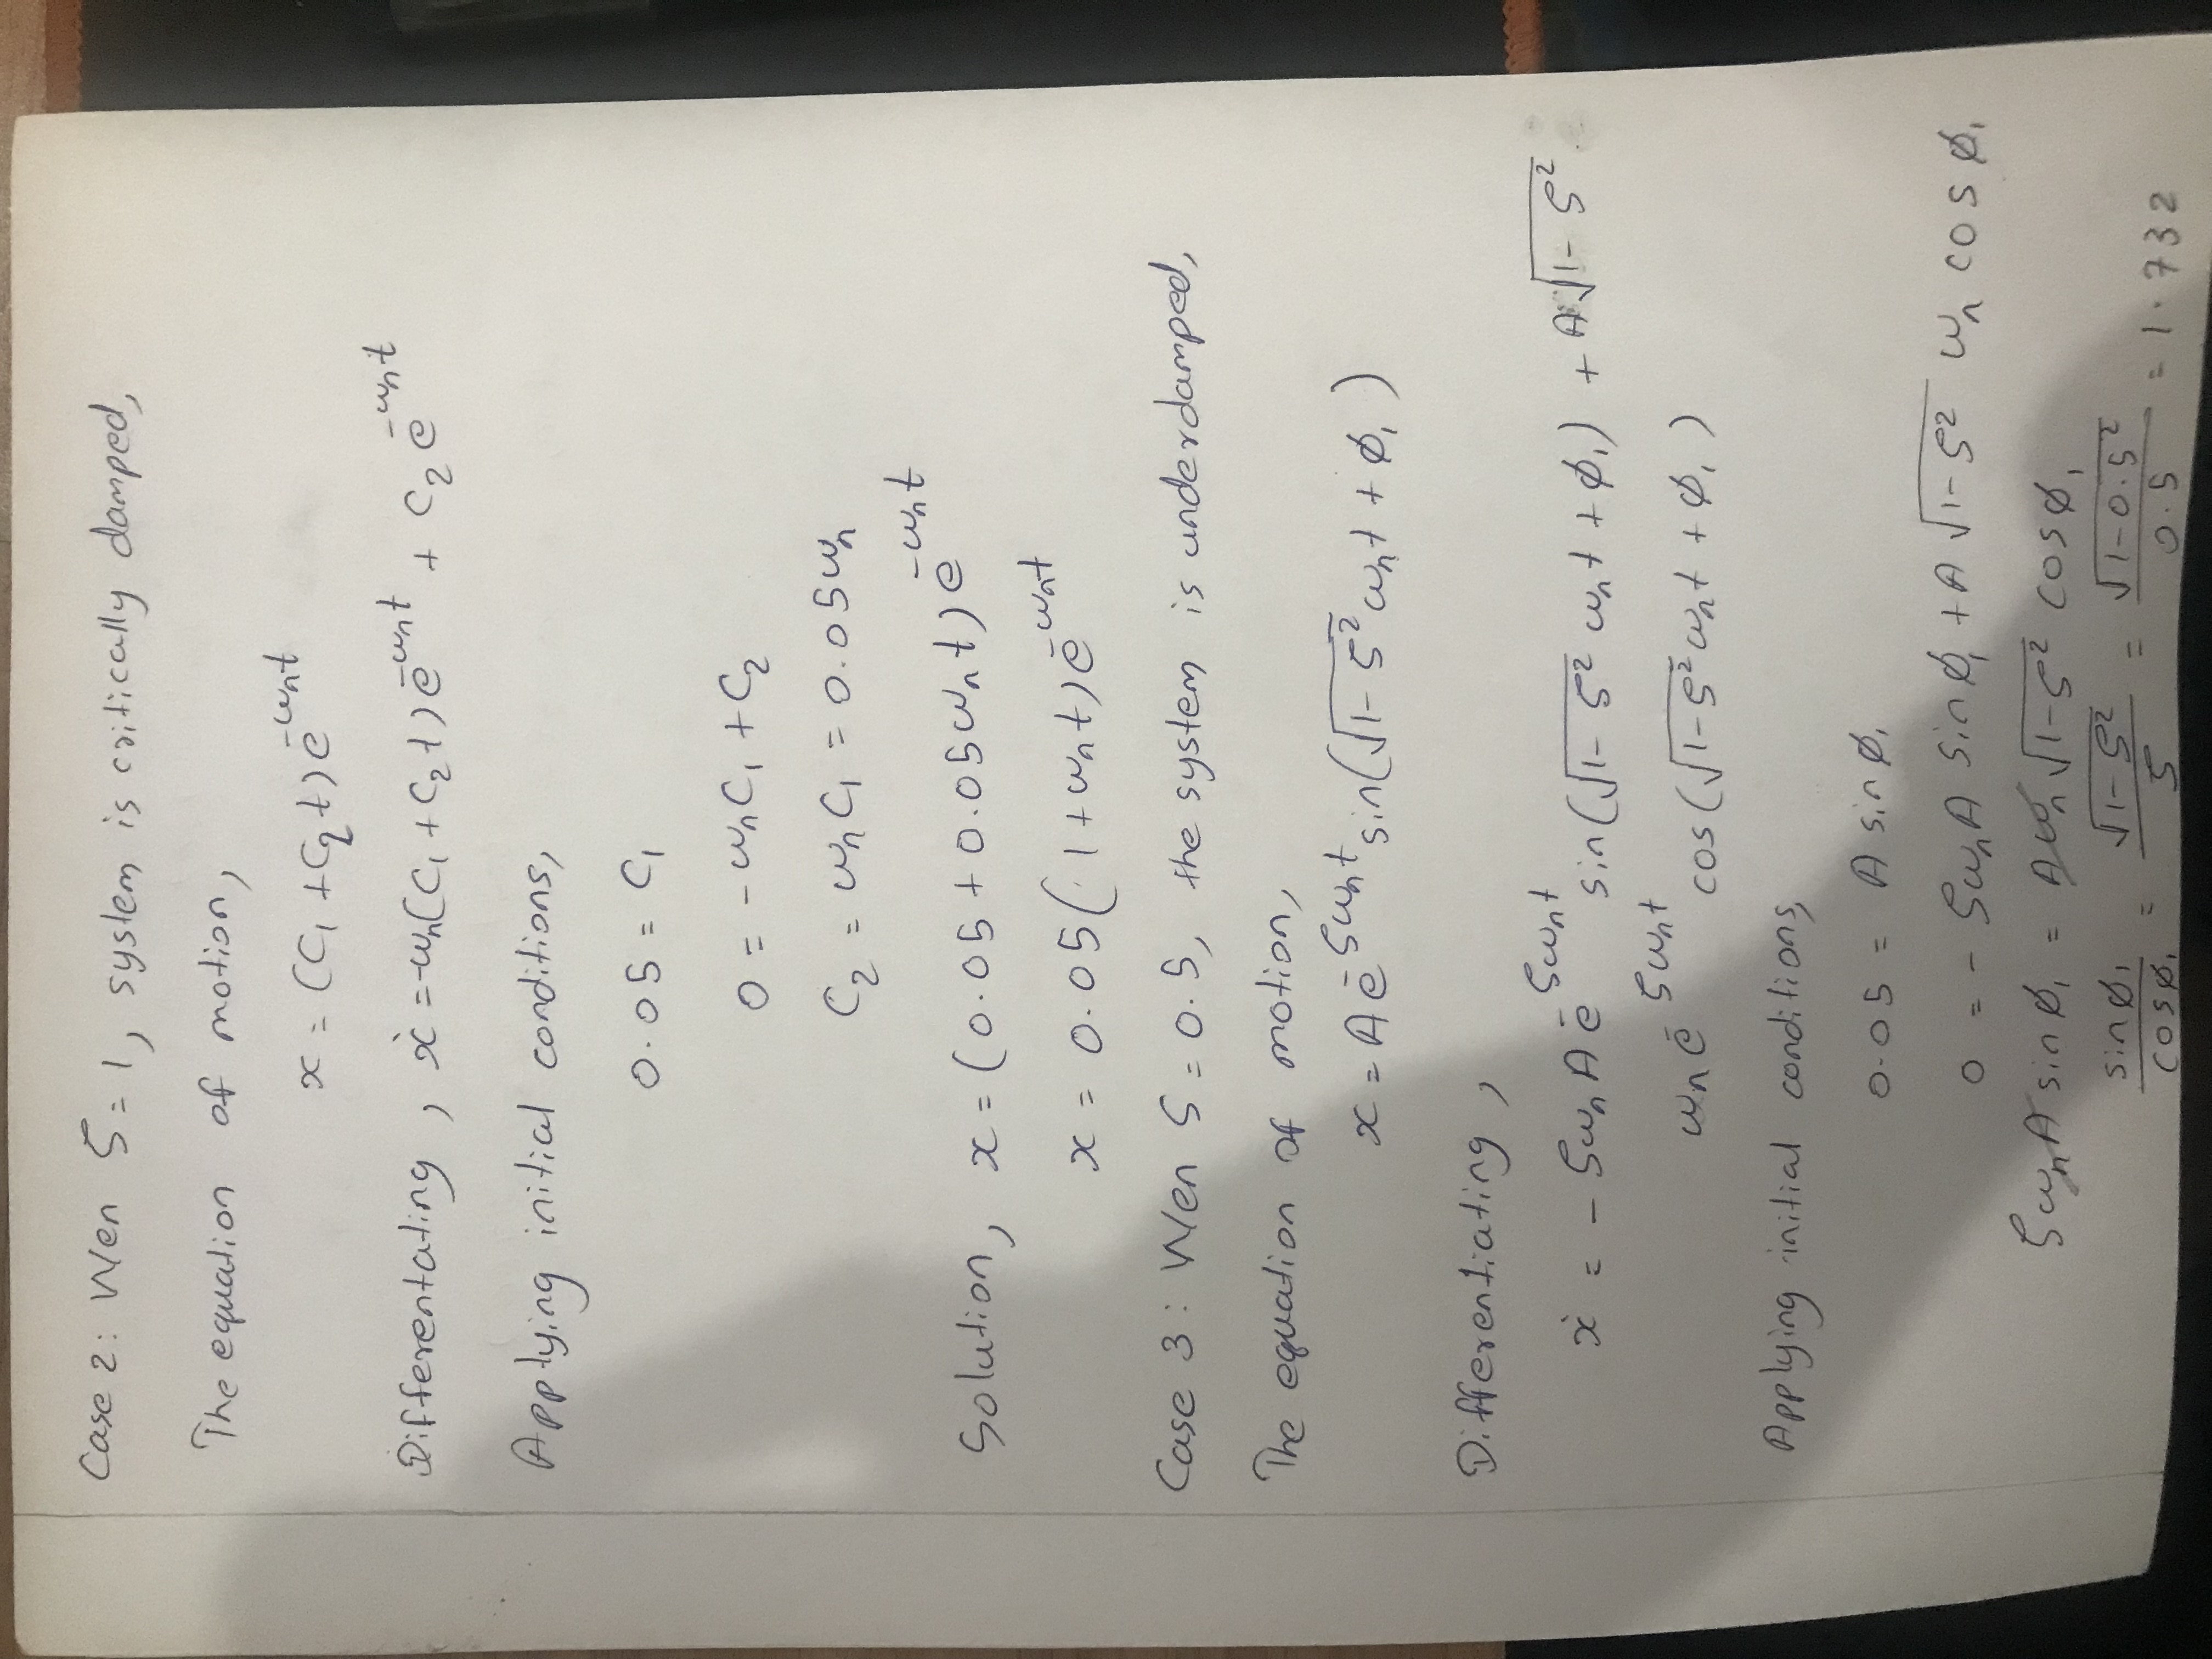 Case 2: Wen ζ = 1, system is critically damped,
The equation of motion,
x = (C₁ + C₂t) e^-ωₙt
Differentating, ẋ = -ωₙ(C₁ + C₂t) e^-ωₙt + C₂ e^-ωₙt
Applying initial conditions,
0.05 = C₁
0 = -ωₙC₁ + C₂
C₂ = ωₙC₁ = 0.05ωₙ
Solution, x = (0.05 + 0.05ωₙt) e^-ωₙt
x = 0.05(1 + ωₙt) e^-ωₙt
Case 3: Wen ζ = 0.5, the system is underdamped,
The equation of motion,
x = A e^-ζωₙt sin(√(1-ζ²) ωₙt + φ₁)
Differentiating,
ẋ = -ζωₙA e^-ζωₙt sin(√(1-ζ²) ωₙt + φ₁) + A√(1-ζ²)
ωₙ e^-ζωₙt cos(√(1-ζ²) ωₙt + φ₁)
Applying initial conditions,
0.05 = A sinφ₁
0 = -ζωₙA sinφ₁ + A √(1-ζ²) ωₙ cosφ₁
ζωₙA sinφ₁ = Aωₙ√(1-ζ²) cosφ₁
sinφ₁/cosφ₁ = √(1-ζ²)/ζ = √(1-0.5²)/0.5 = 1.732